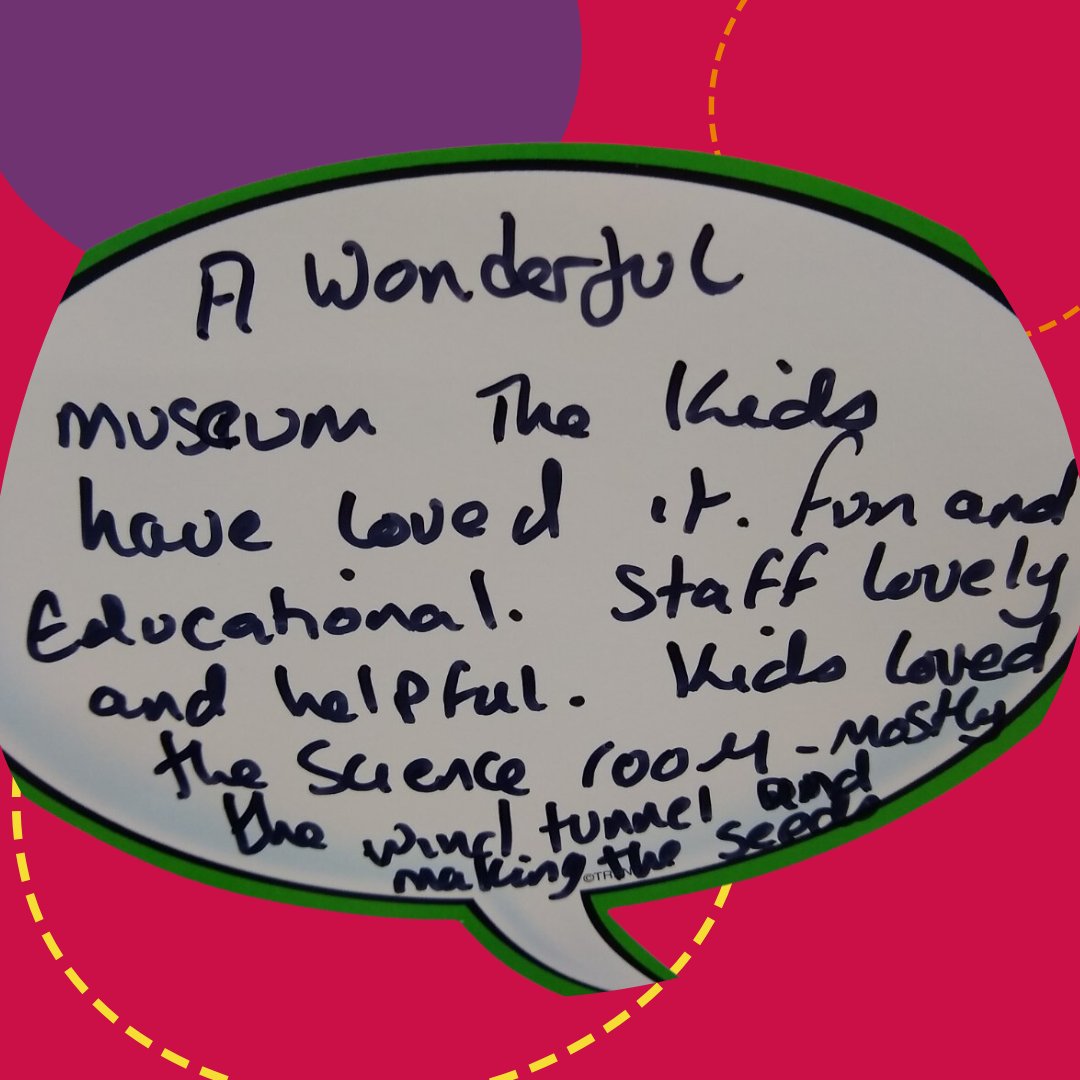 A Wonderful
museum The Kids
have loved it. fun and
Educational. Staff lovely
and helpful. Kids loved
the Science room - mostly
the wind tunnel and
making the seeds